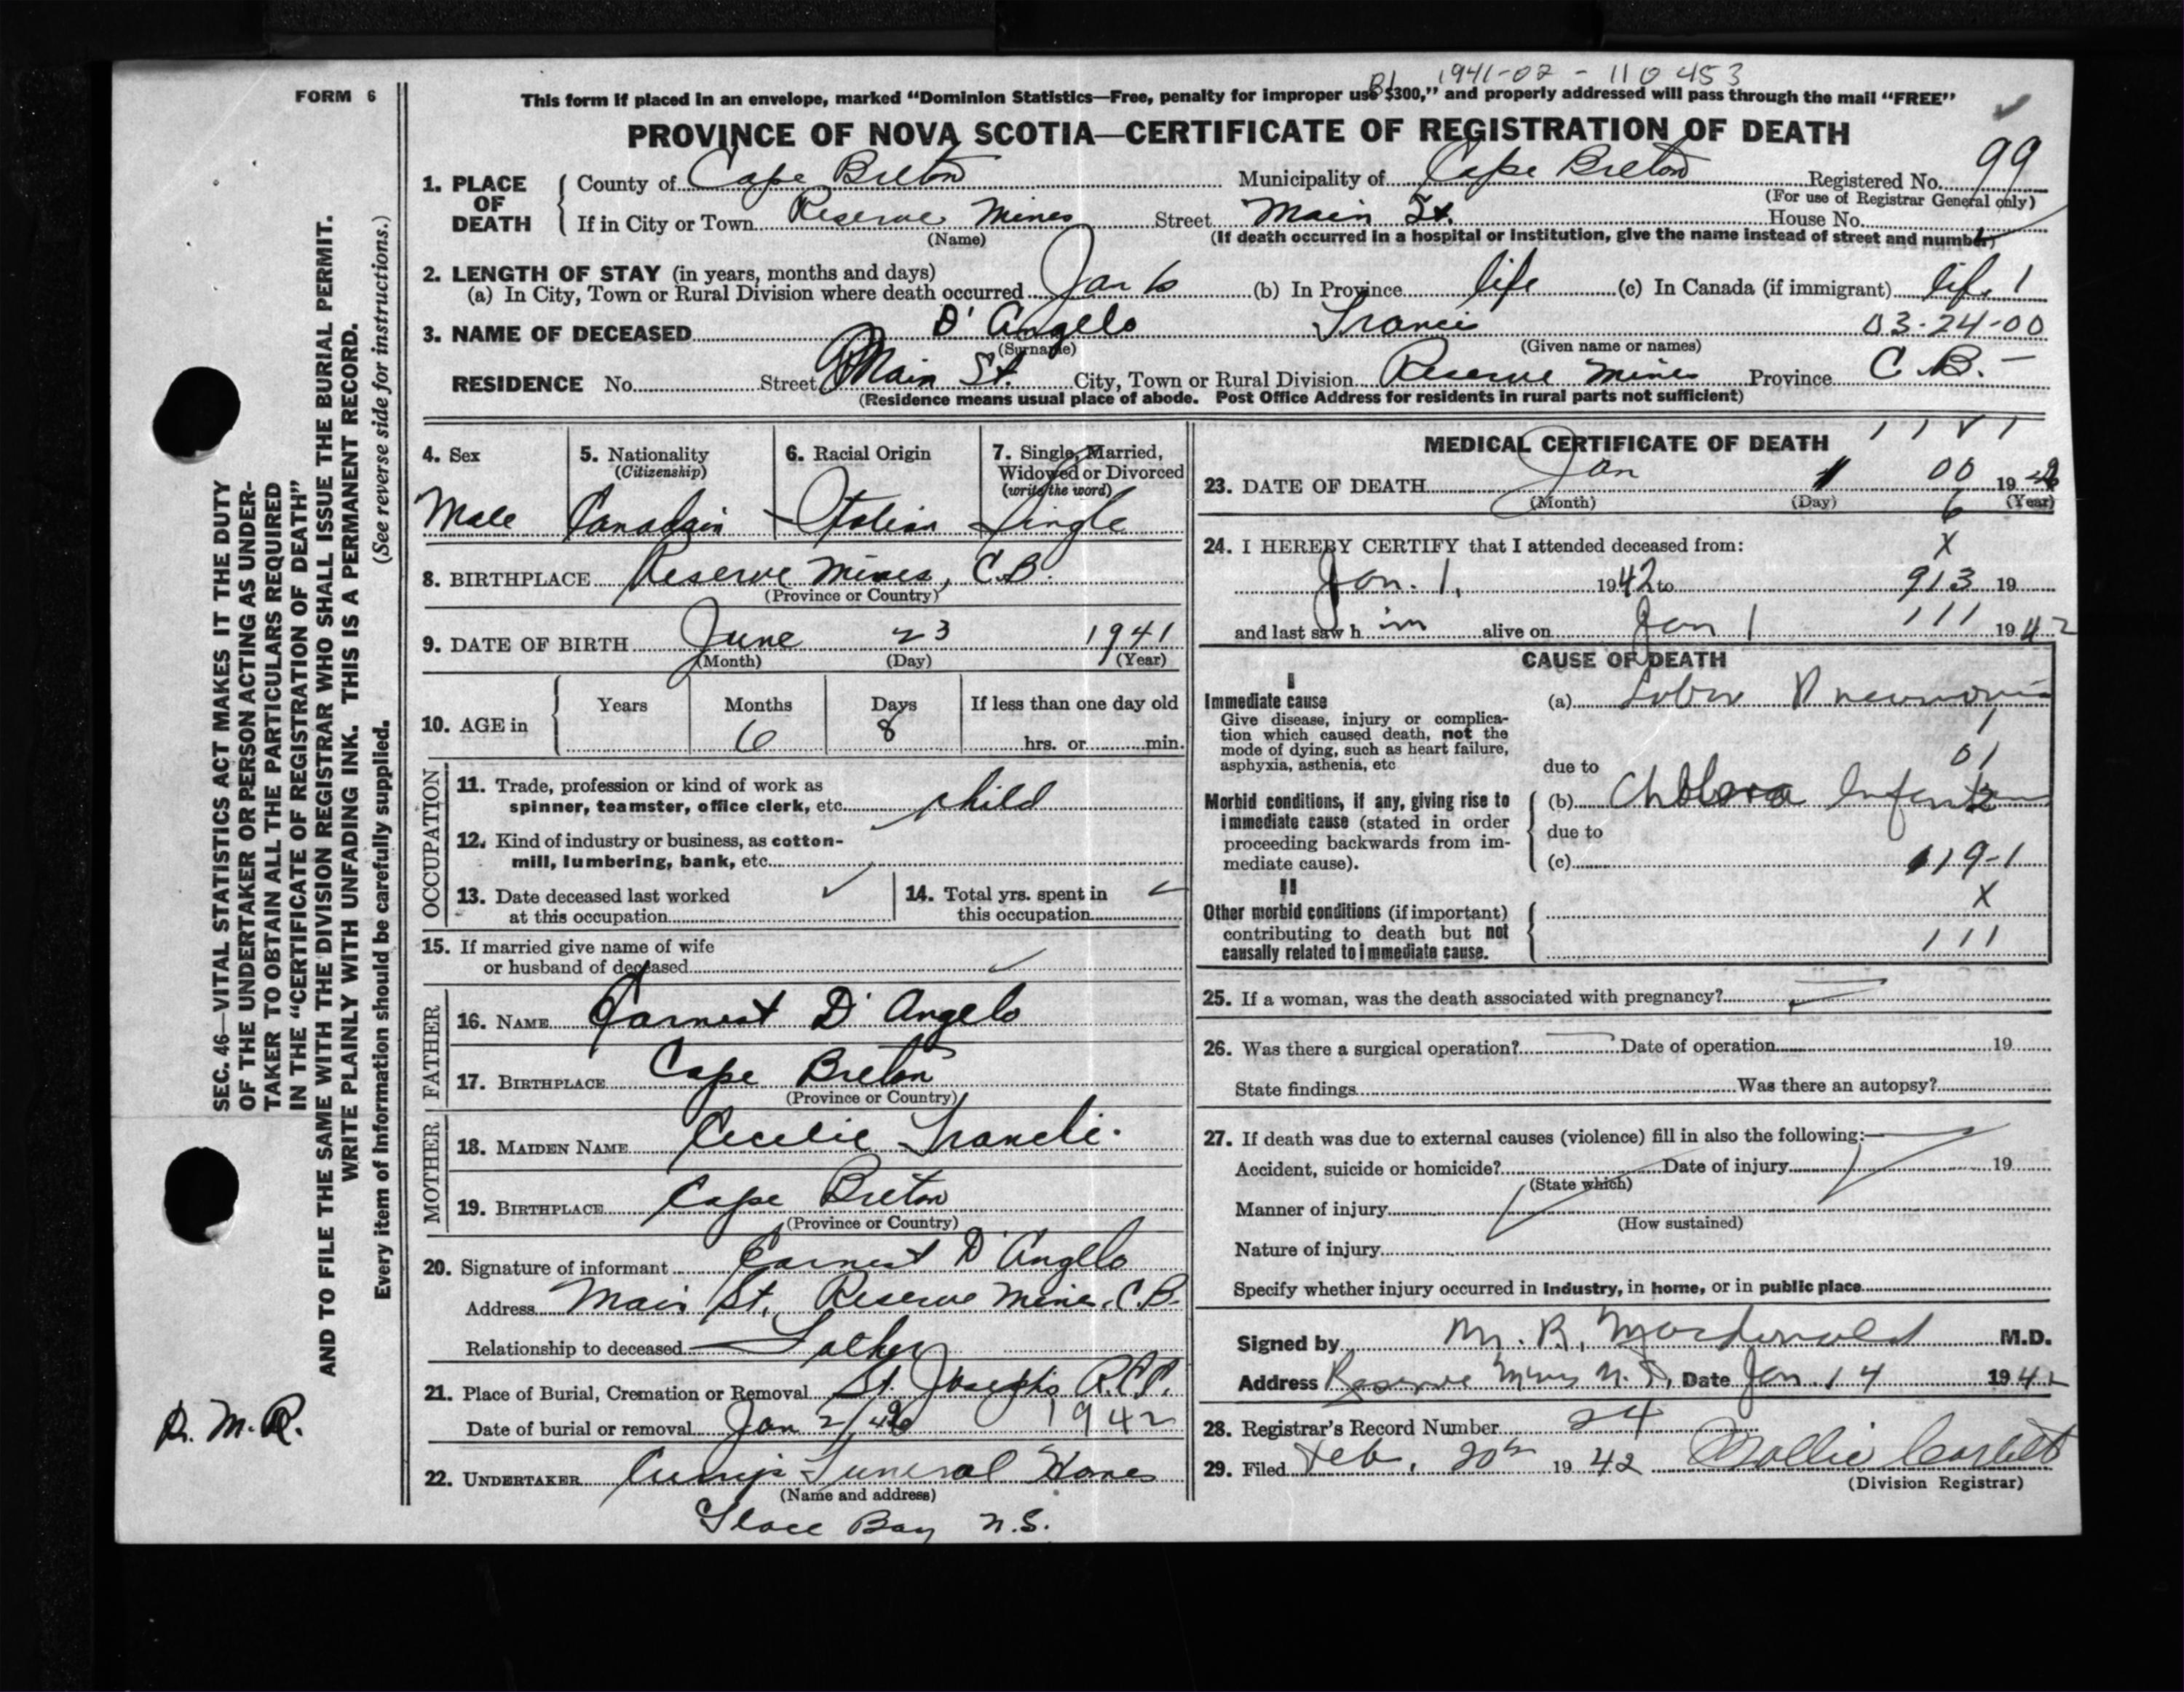 Bl 1941-02-110453
FORM 6
This form if placed in an envelope, marked “Dominion Statistics—Free, penalty for improper use $300,” and properly addressed will pass through the mail “FREE”
PROVINCE OF NOVA SCOTIA—CERTIFICATE OF REGISTRATION OF DEATH
1. PLACE OF DEATH County of Cape Breton Municipality of Cape Breton Registered No. 99
(For use of Registrar General only)
If in City or Town Reserve Mines Street Main St. House No.
(Name) (If death occurred in a hospital or institution, give the name instead of street and number)
2. LENGTH OF STAY (in years, months and days)
(a) In City, Town or Rural Division where death occurred (b) In Province life (c) In Canada (if immigrant) life 1
3. NAME OF DECEASED D' Angelo Francis 03-24-00
(Surname) (Given name or names)
RESIDENCE No. Street Main St. City, Town or Rural Division Reserve Mines Province C.B.
(Residence means usual place of abode. Post Office Address for residents in rural parts not sufficient)
4. Sex 5. Nationality 6. Racial Origin 7. Single, Married,
(Citizenship) Widowed or Divorced
(write the word)
Male Canadain Italian Single
8. BIRTHPLACE Reserve Mines, C.B.
(Province or Country)
9. DATE OF BIRTH June 23 1941
(Month) (Day) (Year)
10. AGE in Years Months Days If less than one day old
6 8 hrs. or min.
OCCUPATION
11. Trade, profession or kind of work as
spinner, teamster, office clerk, etc. child
12. Kind of industry or business, as cotton-
mill, lumbering, bank, etc.
13. Date deceased last worked 14. Total yrs. spent in
at this occupation this occupation
15. If married give name of wife
or husband of deceased
FATHER
16. NAME Earnest D' Angelo
17. BIRTHPLACE Cape Breton
(Province or Country)
MOTHER
18. MAIDEN NAME Cecelie
19. BIRTHPLACE Cape Breton
(Province or Country)
20. Signature of informant Earnest D' Angelo
Address Main St., Reserve Mines, C.B.
Relationship to deceased Father
21. Place of Burial, Cremation or Removal St. Joseph's
Date of burial or removal Jan 2/42 1942
22. UNDERTAKER Funeral Home
(Name and address)
Glace Bay N.S.
MEDICAL CERTIFICATE OF DEATH
23. DATE OF DEATH Jan 1 00 1942
(Month) (Day) (Year)
6
24. I HEREBY CERTIFY that I attended deceased from: X
Jan. 1, 1942 to 913 19
and last saw h im alive on Jan 1 111 1942
CAUSE OF DEATH
I
Immediate cause (a) Lobar Pneumonia
Give disease, injury or complica-
tion which caused death, not the
mode of dying, such as heart failure,
asphyxia, asthenia, etc
1
01
due to
Morbid conditions, if any, giving rise to (b) Cholera Infantum
immediate cause (stated in order due to
proceeding backwards from im-
mediate cause). (c) 119-1
II X
Other morbid conditions (if important)
contributing to death but not 111
causally related to immediate cause.
25. If a woman, was the death associated with pregnancy?
26. Was there a surgical operation? Date of operation 19
State findings Was there an autopsy?
27. If death was due to external causes (violence) fill in also the following:—
Accident, suicide or homicide? Date of injury 19
(State which)
Manner of injury
(How sustained)
Nature of injury
Specify whether injury occurred in industry, in home, or in public place
Signed by M. R. Macdonald M.D.
Address Reserve Mines N.S. Date Jan. 14 1942
28. Registrar's Record Number 24
29. Filed Feb. 20th 1942 Mollie Corbett
(Division Registrar)
SEC. 46—VITAL STATISTICS ACT MAKES IT THE DUTY
OF THE UNDERTAKER OR PERSON ACTING AS UNDER-
TAKER TO OBTAIN ALL THE PARTICULARS REQUIRED
IN THE “CERTIFICATE OF REGISTRATION OF DEATH”
AND TO FILE THE SAME WITH THE DIVISION REGISTRAR WHO SHALL ISSUE THE BURIAL PERMIT.
WRITE PLAINLY WITH UNFADING INK. THIS IS A PERMANENT RECORD.
Every item of information should be carefully supplied. (See reverse side for instructions.)
R. M. R.